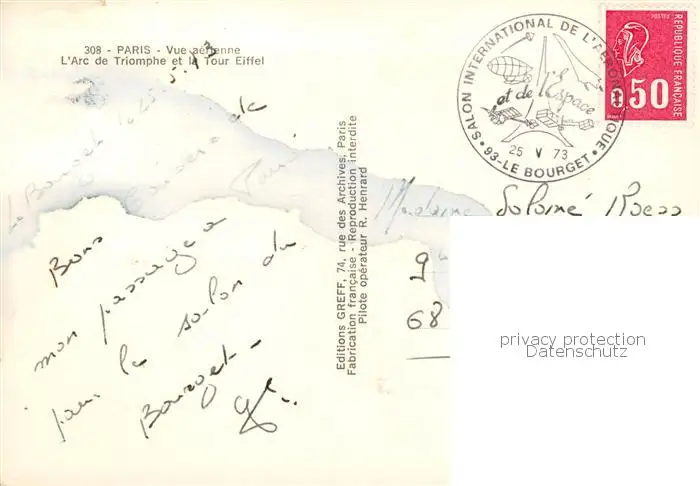 308 - PARIS - Vue aérienne
L'Arc de Triomphe et la Tour Eiffel
Le Bourget
Bons
mon passage a
pour le salon du
Bourget -
Editions GREFF, 74, rue des Archives, Paris
Fabrication française - Reproduction interdite
Pilote opérateur R. Henrard
SALON INTERNATIONAL DE L'AERONAUTIQUE
et de l'Espace
25 V 73
93-LE BOURGET
POSTES
REPUBLIQUE FRANÇAISE
0,50
Madame Salomé
9
68
privacy protection
Datenschutz